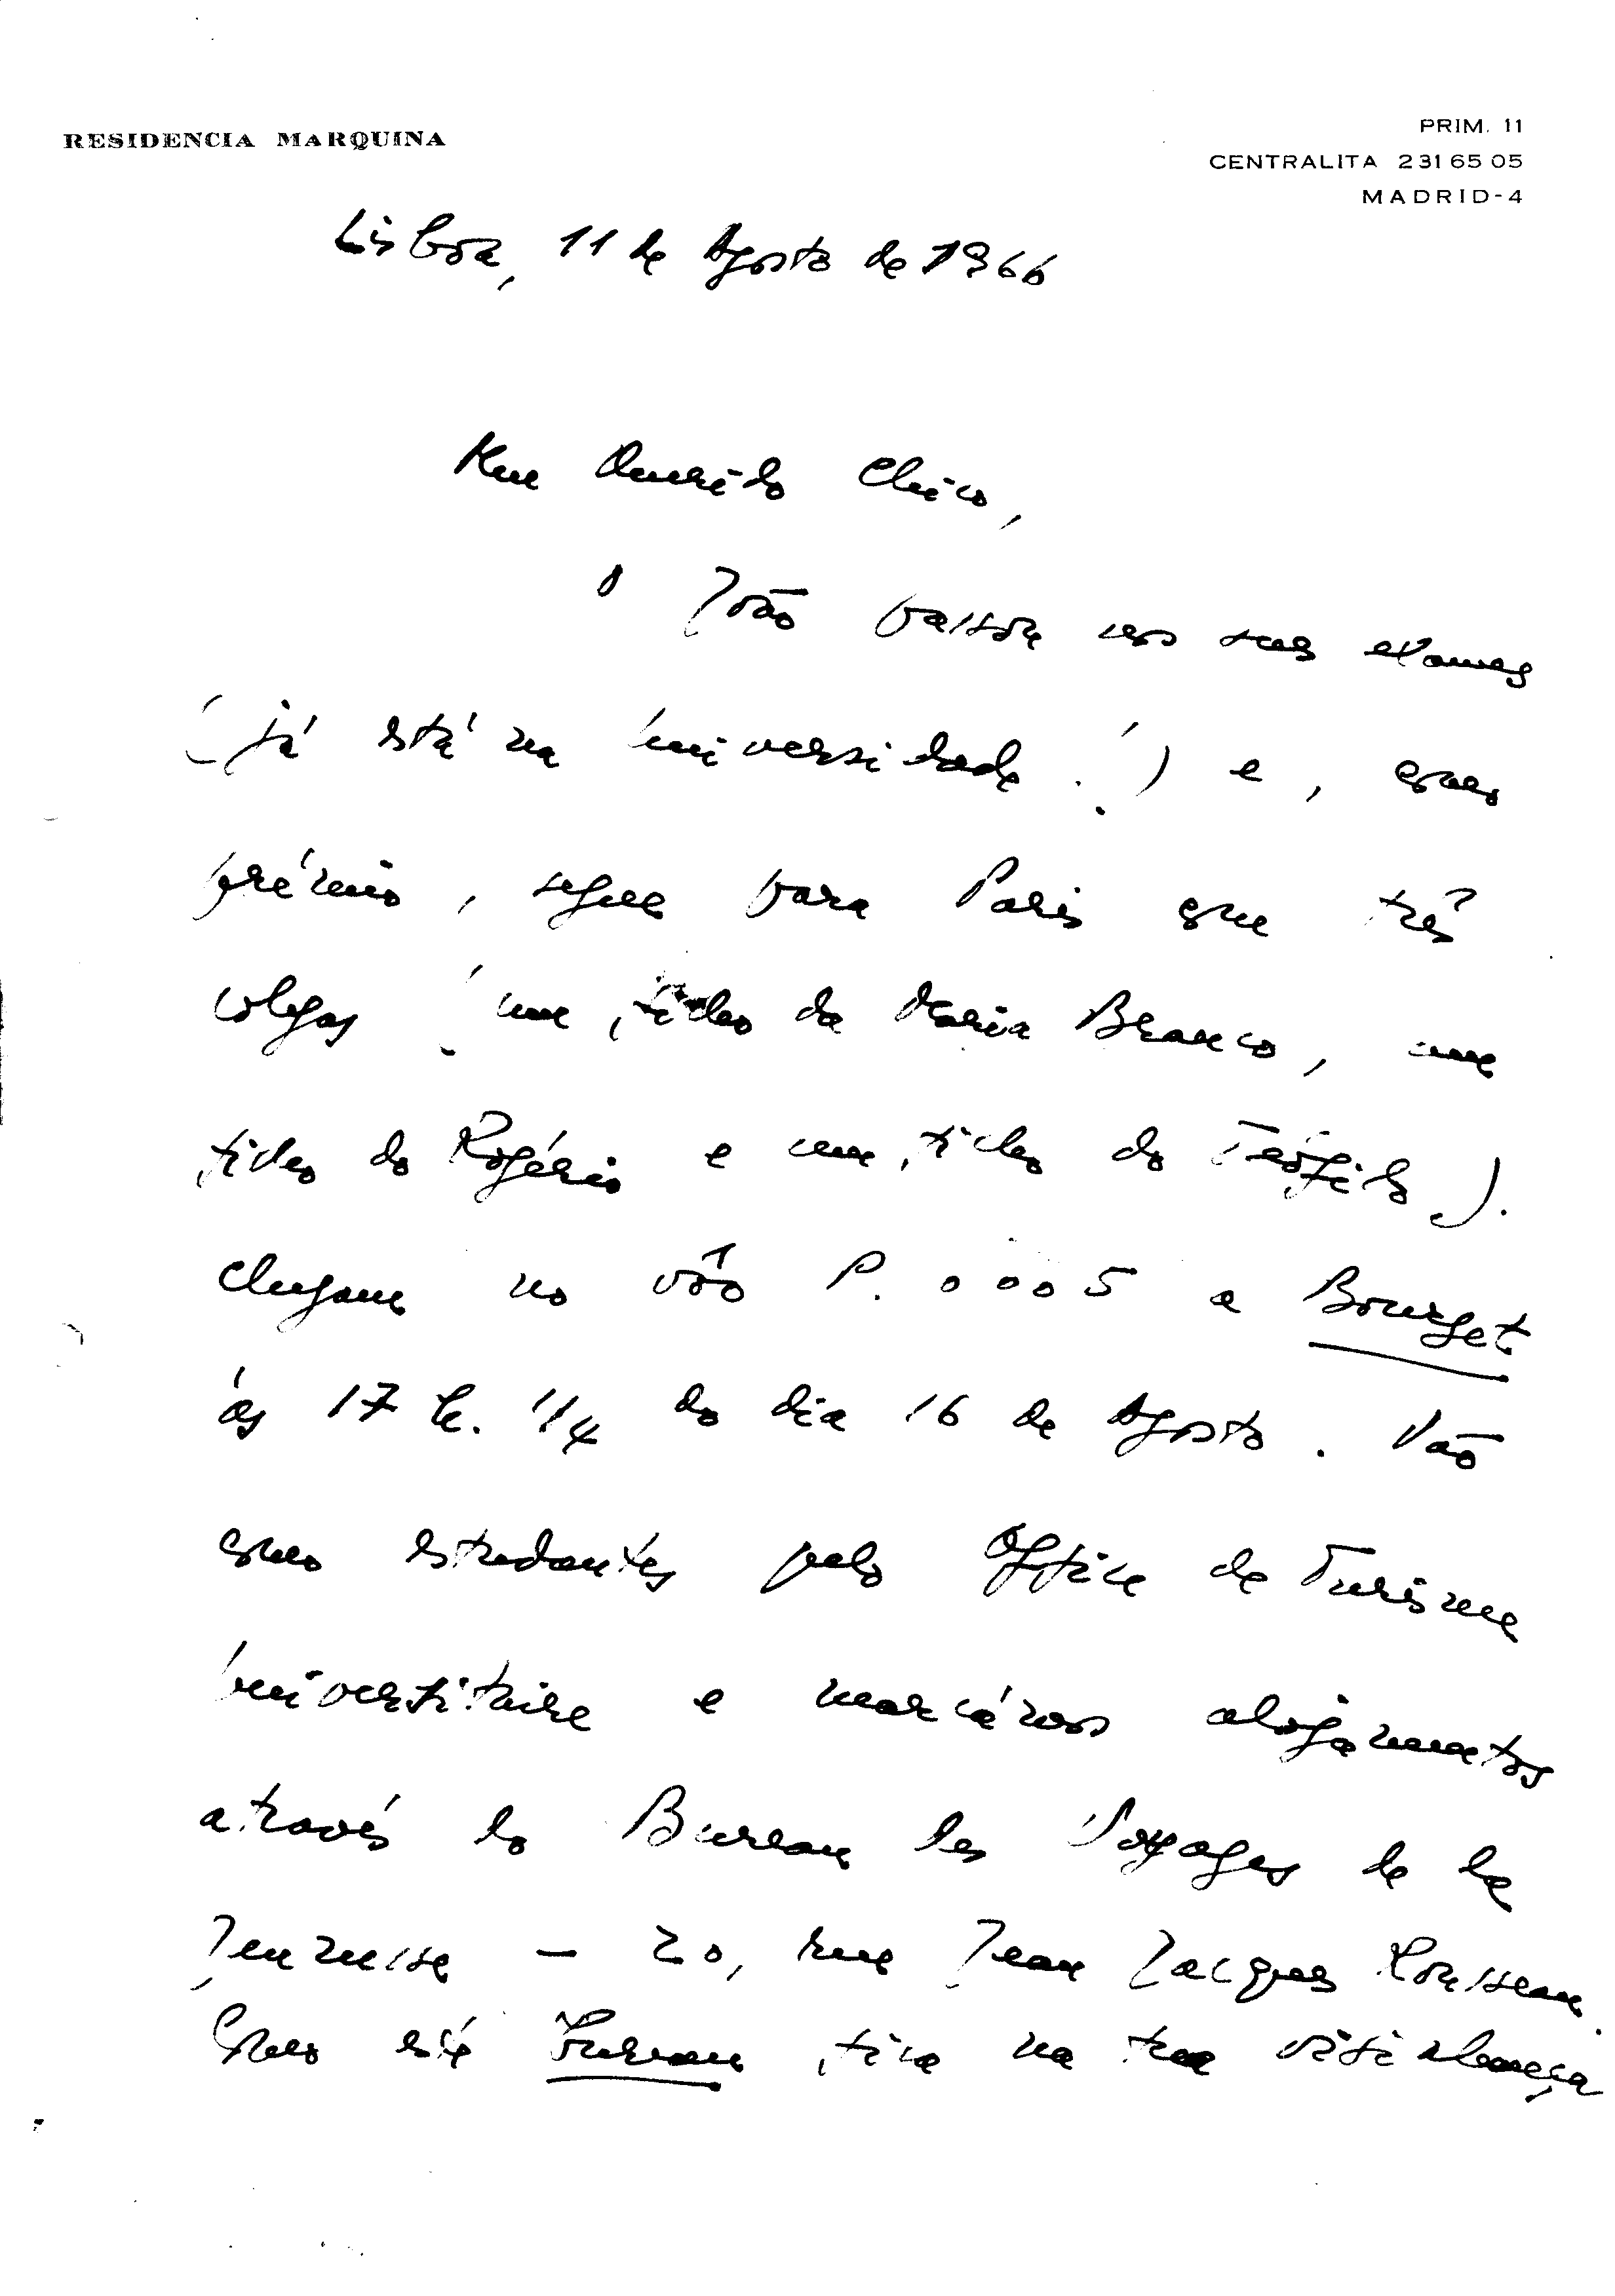 RESIDENCIA MARQUINA
PRIM. 11
CENTRALITA 231 65 05
MADRID-4
Lisboa, 11 de Agosto de 1966
Meu Querido Chico,
O João passou nos seus exames
(já está na Universidade!) e, como
prémio, segue para Paris com três
colegas (um filho da Maria Branco, um
filho do Rogério e um filho do Teófilo).
Chegam no vôo P. 0005 a Bourget
às 17 h. 1/4 do dia 16 de Agosto. Vão
como estudantes pelo Office de Turisme
Universitaire e marcámos alojamentos
através do Bureau des Voyages de la
Jeunesse — 20, rue Jean Jacques Rousseau.
Como este Bureau fica na tua vizinhança